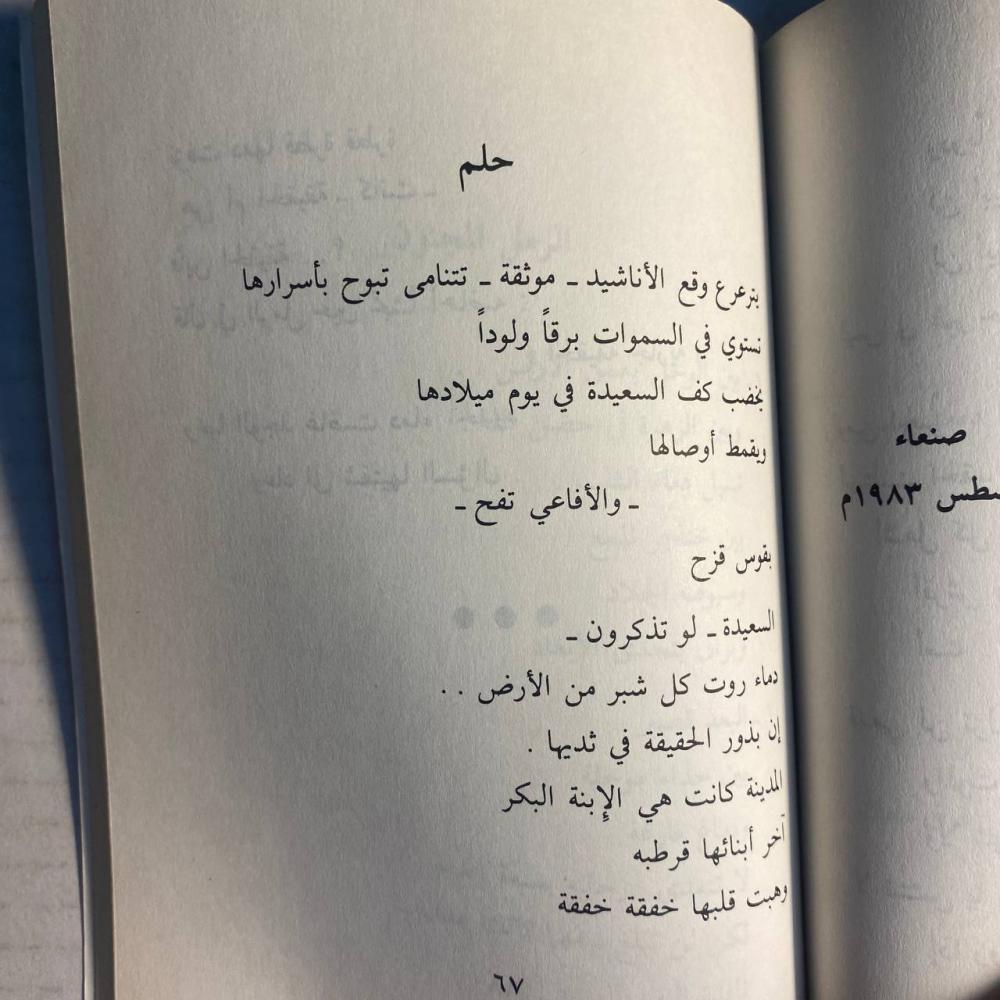 صنعاء
١٩٨٣م
حلم
يترعرع وقع الأناشيد ـ موثقة ـ تتنامى تبوح بأسرارها
تستوي في السموات برقاً ولوداً
يخضب كف السعيدة في يوم ميلادها
ويقمط أوصالها
ـ والأفاعي تفح ـ
بقوس قزح
السعيدة ـ لو تذكرون ـ
دماء روت كل شبر من الأرض . .
إن بذور الحقيقة في ثديها .
المدينة كانت هي الإِبنة البكر
آخر أبنائها قرطبه
وهبت قلبها خفقة خفقة
٦٧